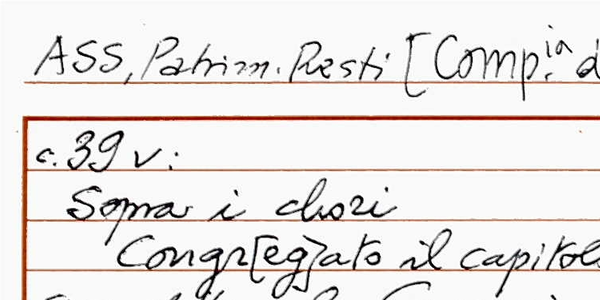 ASS, Patrim. Resti [Comp.ia d
c. 39 v:
Sopra i chori
Congr[eg]ato il capitol